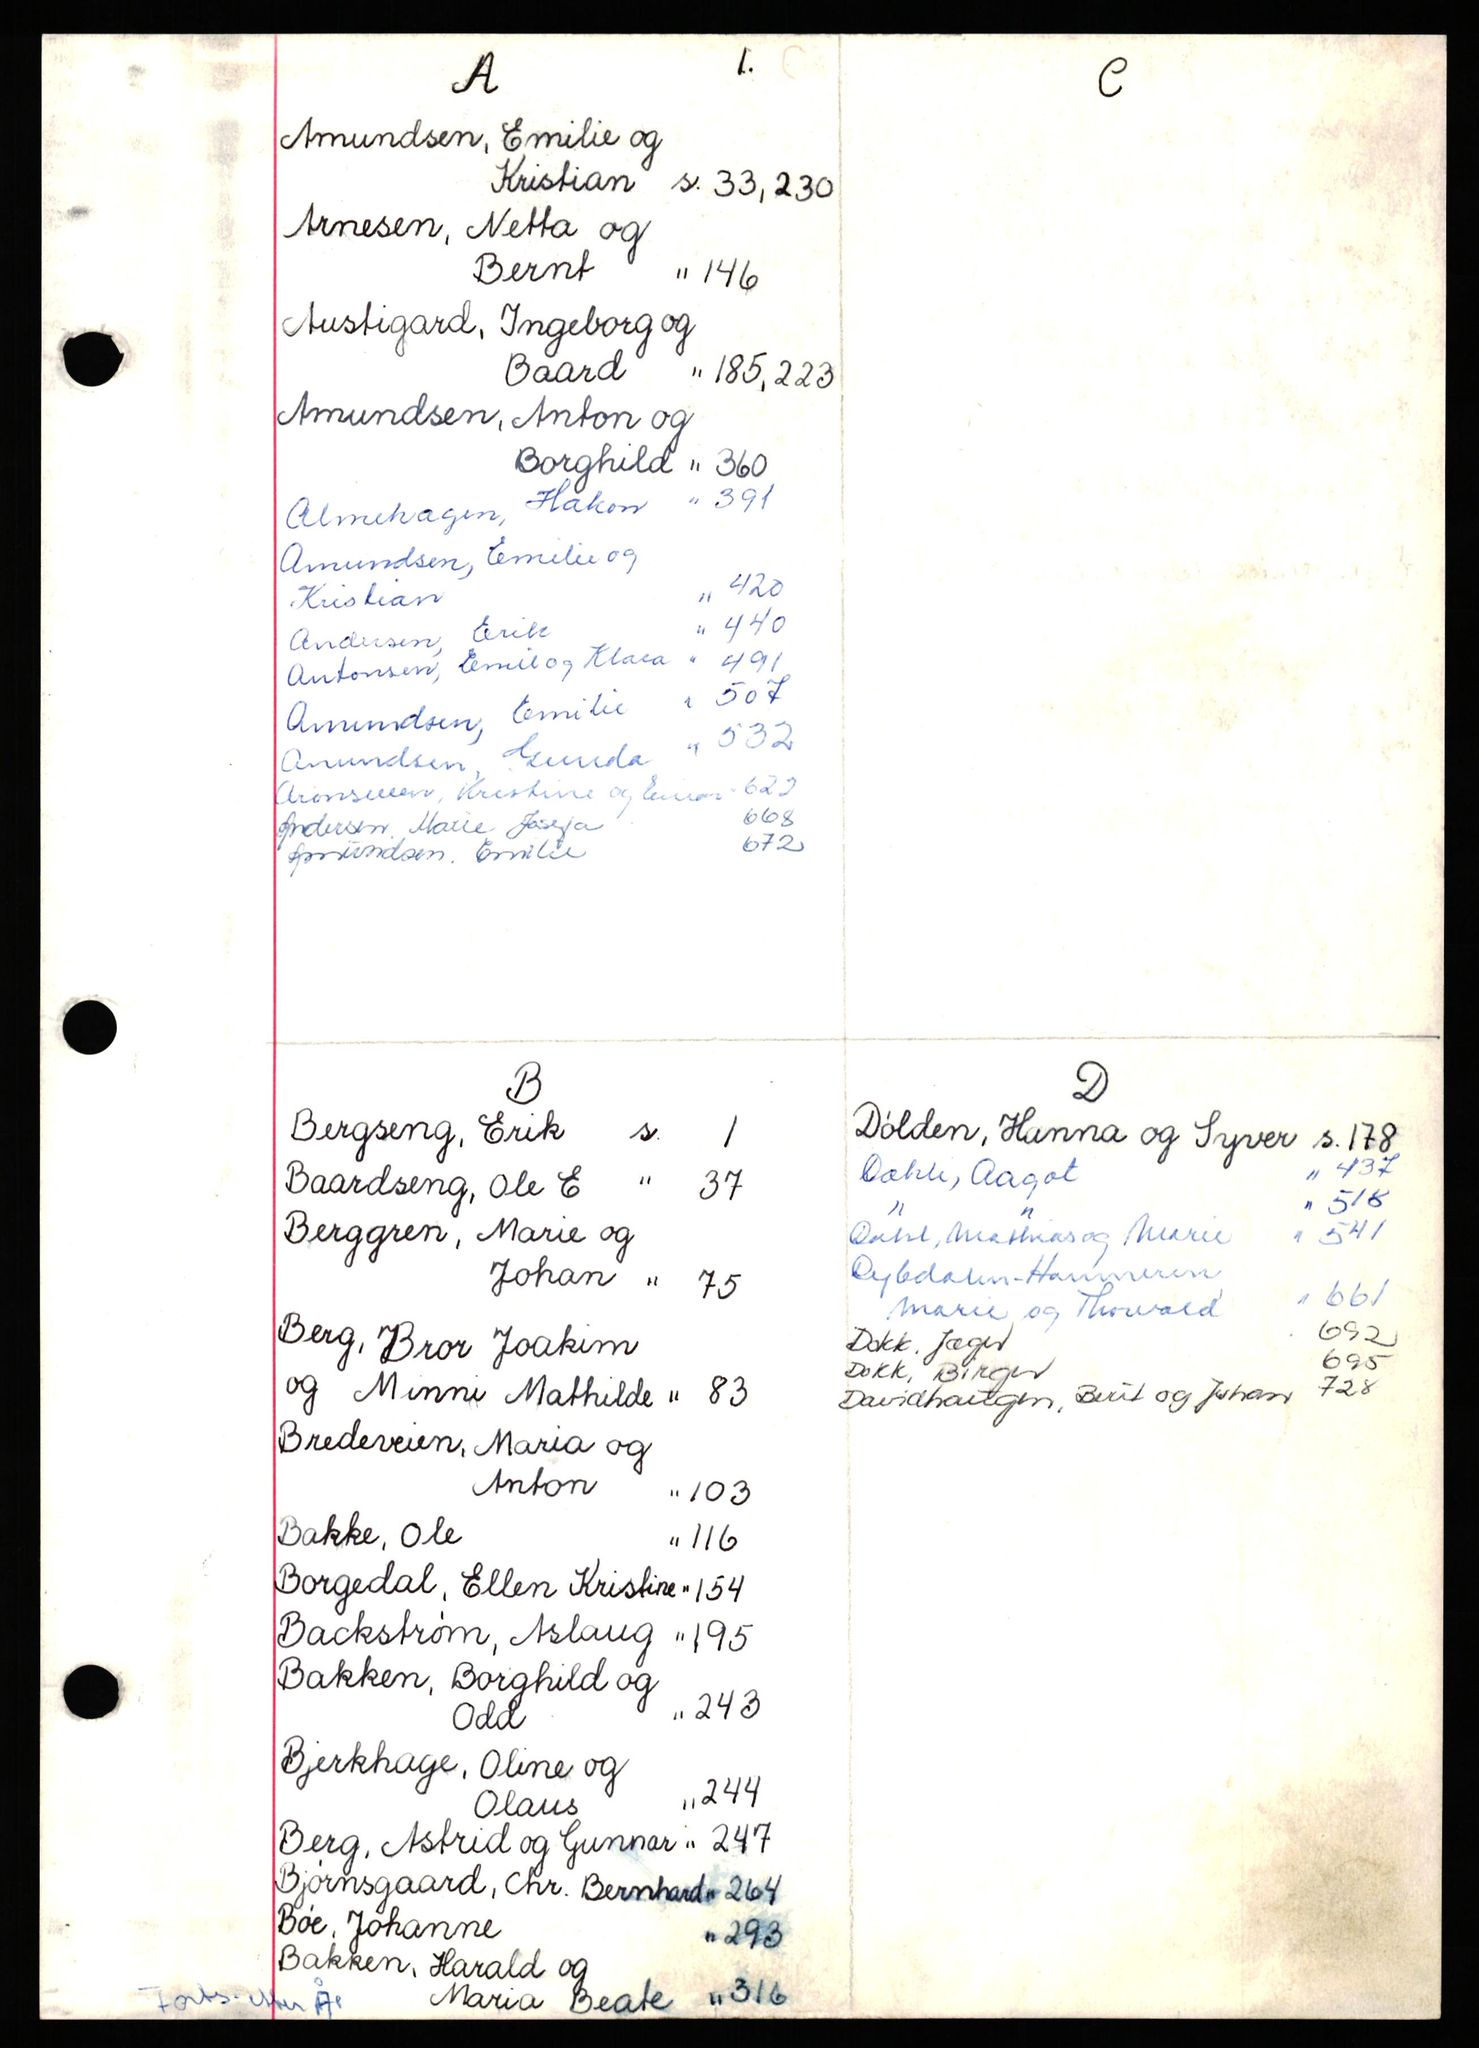 1.
A
Amundsen, Emilie og
Kristian s. 33, 230
Arnesen, Netta og
Bernt " 146
Austigard, Ingeborg og
Baard " 185, 223
Amundsen, Anton og
Borghild " 360
Almehagen, Håkon " 391
Amundsen, Emilie og
Kristian " 420
Andersen, Erik " 440
Antonsen, Emil og Klara " 491
Amundsen, Emilie " 507
Amundsen, Gunda " 532
Kristine og Einar " 622
Andersen, Marie Josefa 668
Amundsen, Emilie 672
B
Bergseng, Erik s. 1
Baardseng, Ole E " 37
Berggren, Marie og
Johan " 75
Berg, Bror Joakim
og Minni Mathilde " 83
Bredeveien, Maria og
Anton " 103
Bakke, Ole " 116
Borgedal, Ellen Kristine " 154
Backstrøm, Aslaug " 195
Bakken, Borghild og
Odd " 243
Bjerkhage, Oline og
Olaus " 244
Berg, Astrid og Gunnar " 247
Bjørnsgaard, Chr. Bernhard " 264
Bøe, Johanne " 293
Bakken, Harald og
Maria Beate " 316
Forts. etter Å
C
D
Dølden, Hanna og Syver s. 178
Dæhli, Aagot " 437
" " " 518
Dahl, Mathias og Marie " 541
Dybdalen-Hammeren,
Marie og Thorvald " 661
Dokk, Jæger 692
Dokk, Birger 695
Davidhaugen, Berit og Johan 728